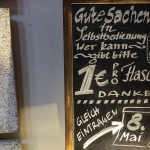 Gute Sachen
in
Selbstbedienung
Wer kann
gibt bitte
1€ PRO Flasc
DANKE
GLEICH
EINTRAGEN
8.
Mai